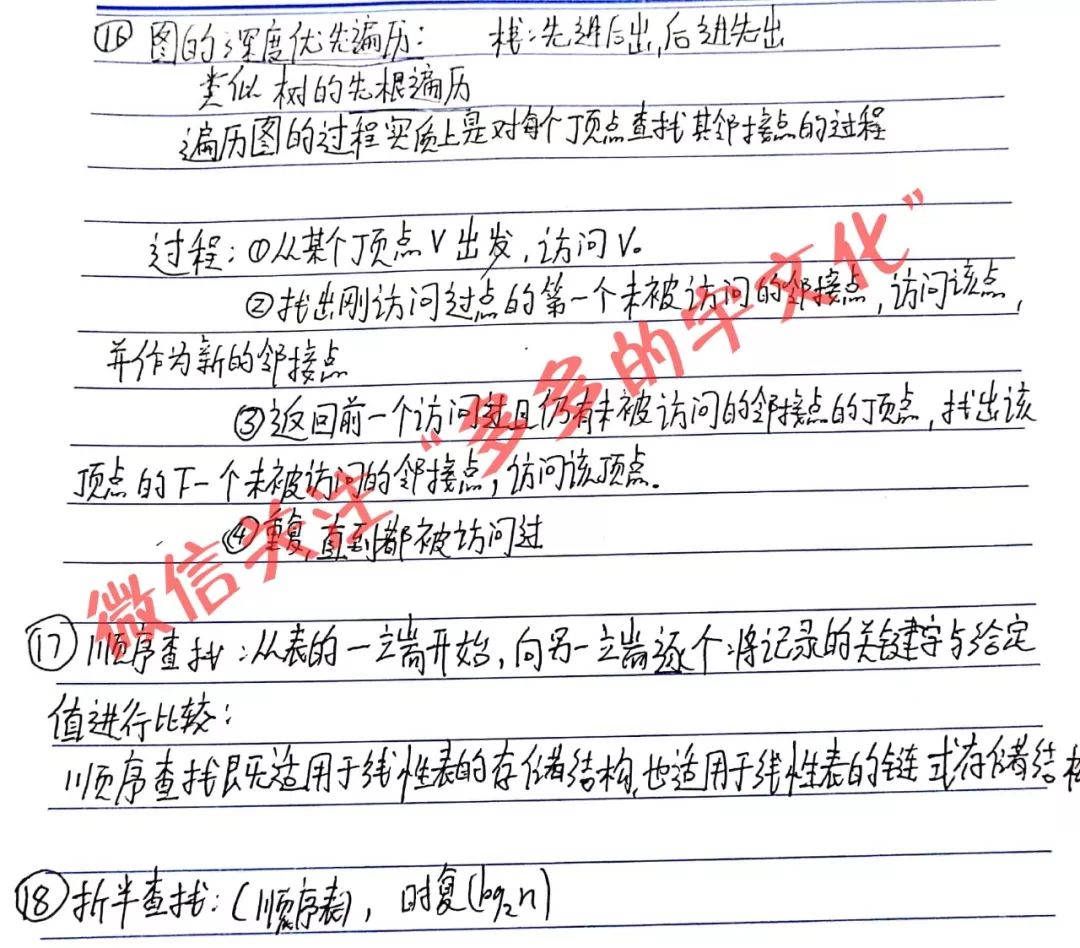 ⑯ 图的深度优先遍历: 栈:先进后出,后进先出
类似树的先根遍历
遍历图的过程实质上是对每个顶点查找其邻接点的过程
过程:①从某个顶点V出发,访问V。
②找出刚访问过点的第一个未被访问的邻接点,访问该点,
并作为新的邻接点
③返回前一个访问过且仍有未被访问的邻接点的顶点,找出该
顶点的下一个未被访问的邻接点,访问该顶点.
④重复,直到都被访问过
微信关注“多多的宇文化”
⑰ 顺序查找:从表的一端开始,向另一端逐个将记录的关键字与给定
值进行比较:
顺序查找既适用于线性表的存储结构,也适用于线性表的链式存储结构
⑱ 折半查找:(顺序表), 时复(log₂n)